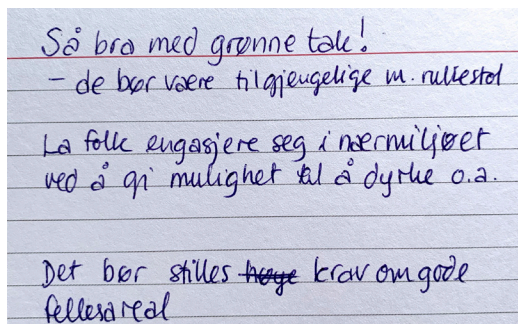 Så bra med grønne tak!
- de bør være tilgjengelige m. rullestol
La folk engasjere seg i nærmiljøet
ved å gi mulighet til å dyrke o.a.
Det bør stilles høye krav om gode
fellesareal